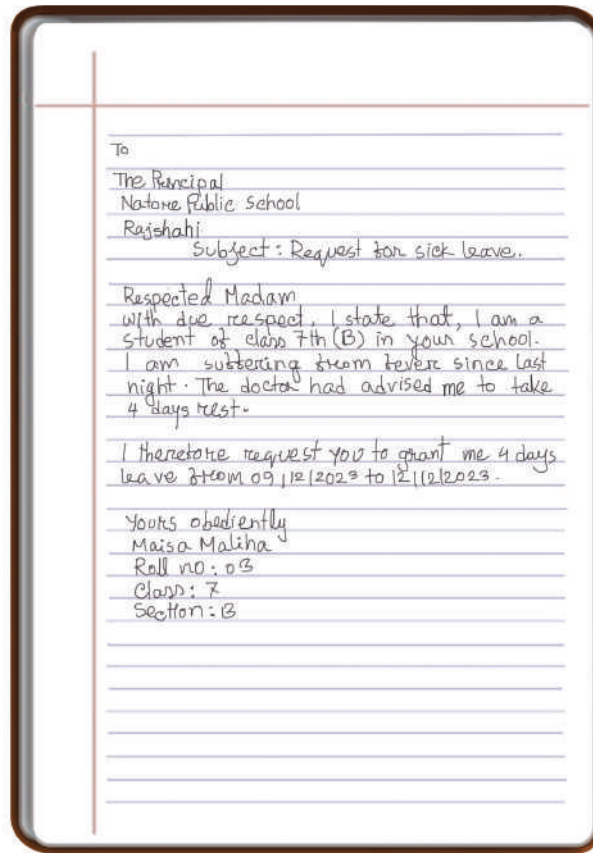 To
The Principal
Natore Public School
Rajshahi
Subject: Request for sick leave.
Respected Madam
with due respect, I state that, I am a
student of class 7th (B) in your school.
I am suffering from fever since last
night. The doctor had advised me to take
4 days rest.
I therefore request you to grant me 4 days
leave from 09/12/2023 to 12/12/2023.
Yours obediently
Maisa Maliha
Roll no: 03
Class: 7
Section: B